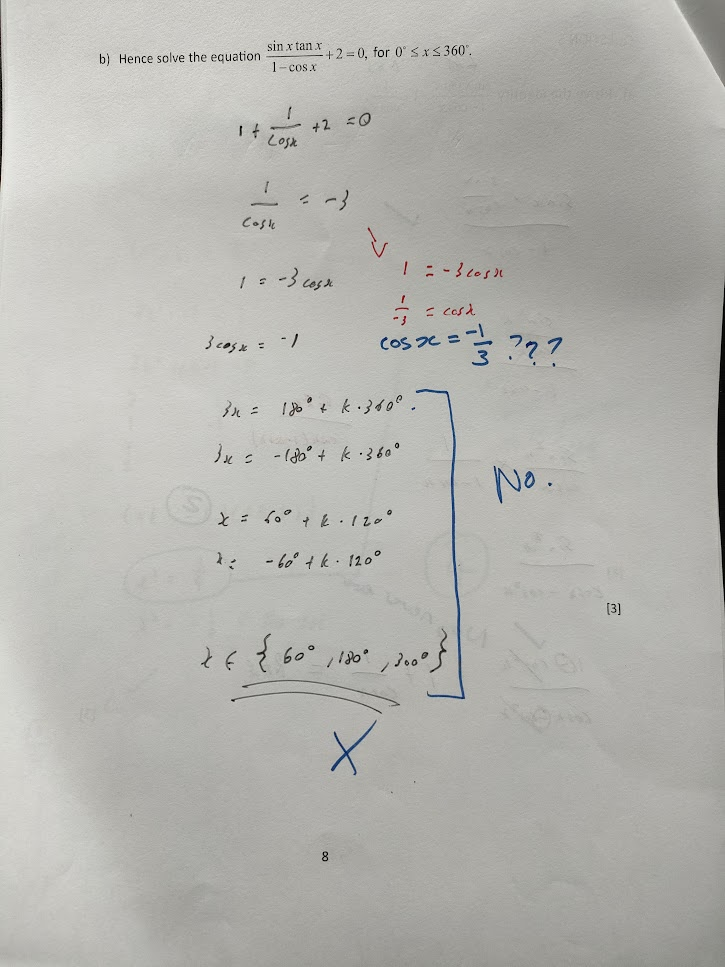 b) Hence solve the equation sin x tan x / 1 − cos x + 2 = 0, for 0° ≤ x ≤ 360°.
1 + 1/cosx + 2 = 0
1/cosx = -3
1 = -3 cosx
1 = -3 cosx
1/-3 = cosx
3 cosx = -1
cos x = -1/3 ???
3x = 180° + k · 360°.
3x = -180° + k · 360°
No.
x = 60° + k · 120°
x = -60° + k · 120°
[3]
x ∈ { 60°, 180°, 300° }
X
8